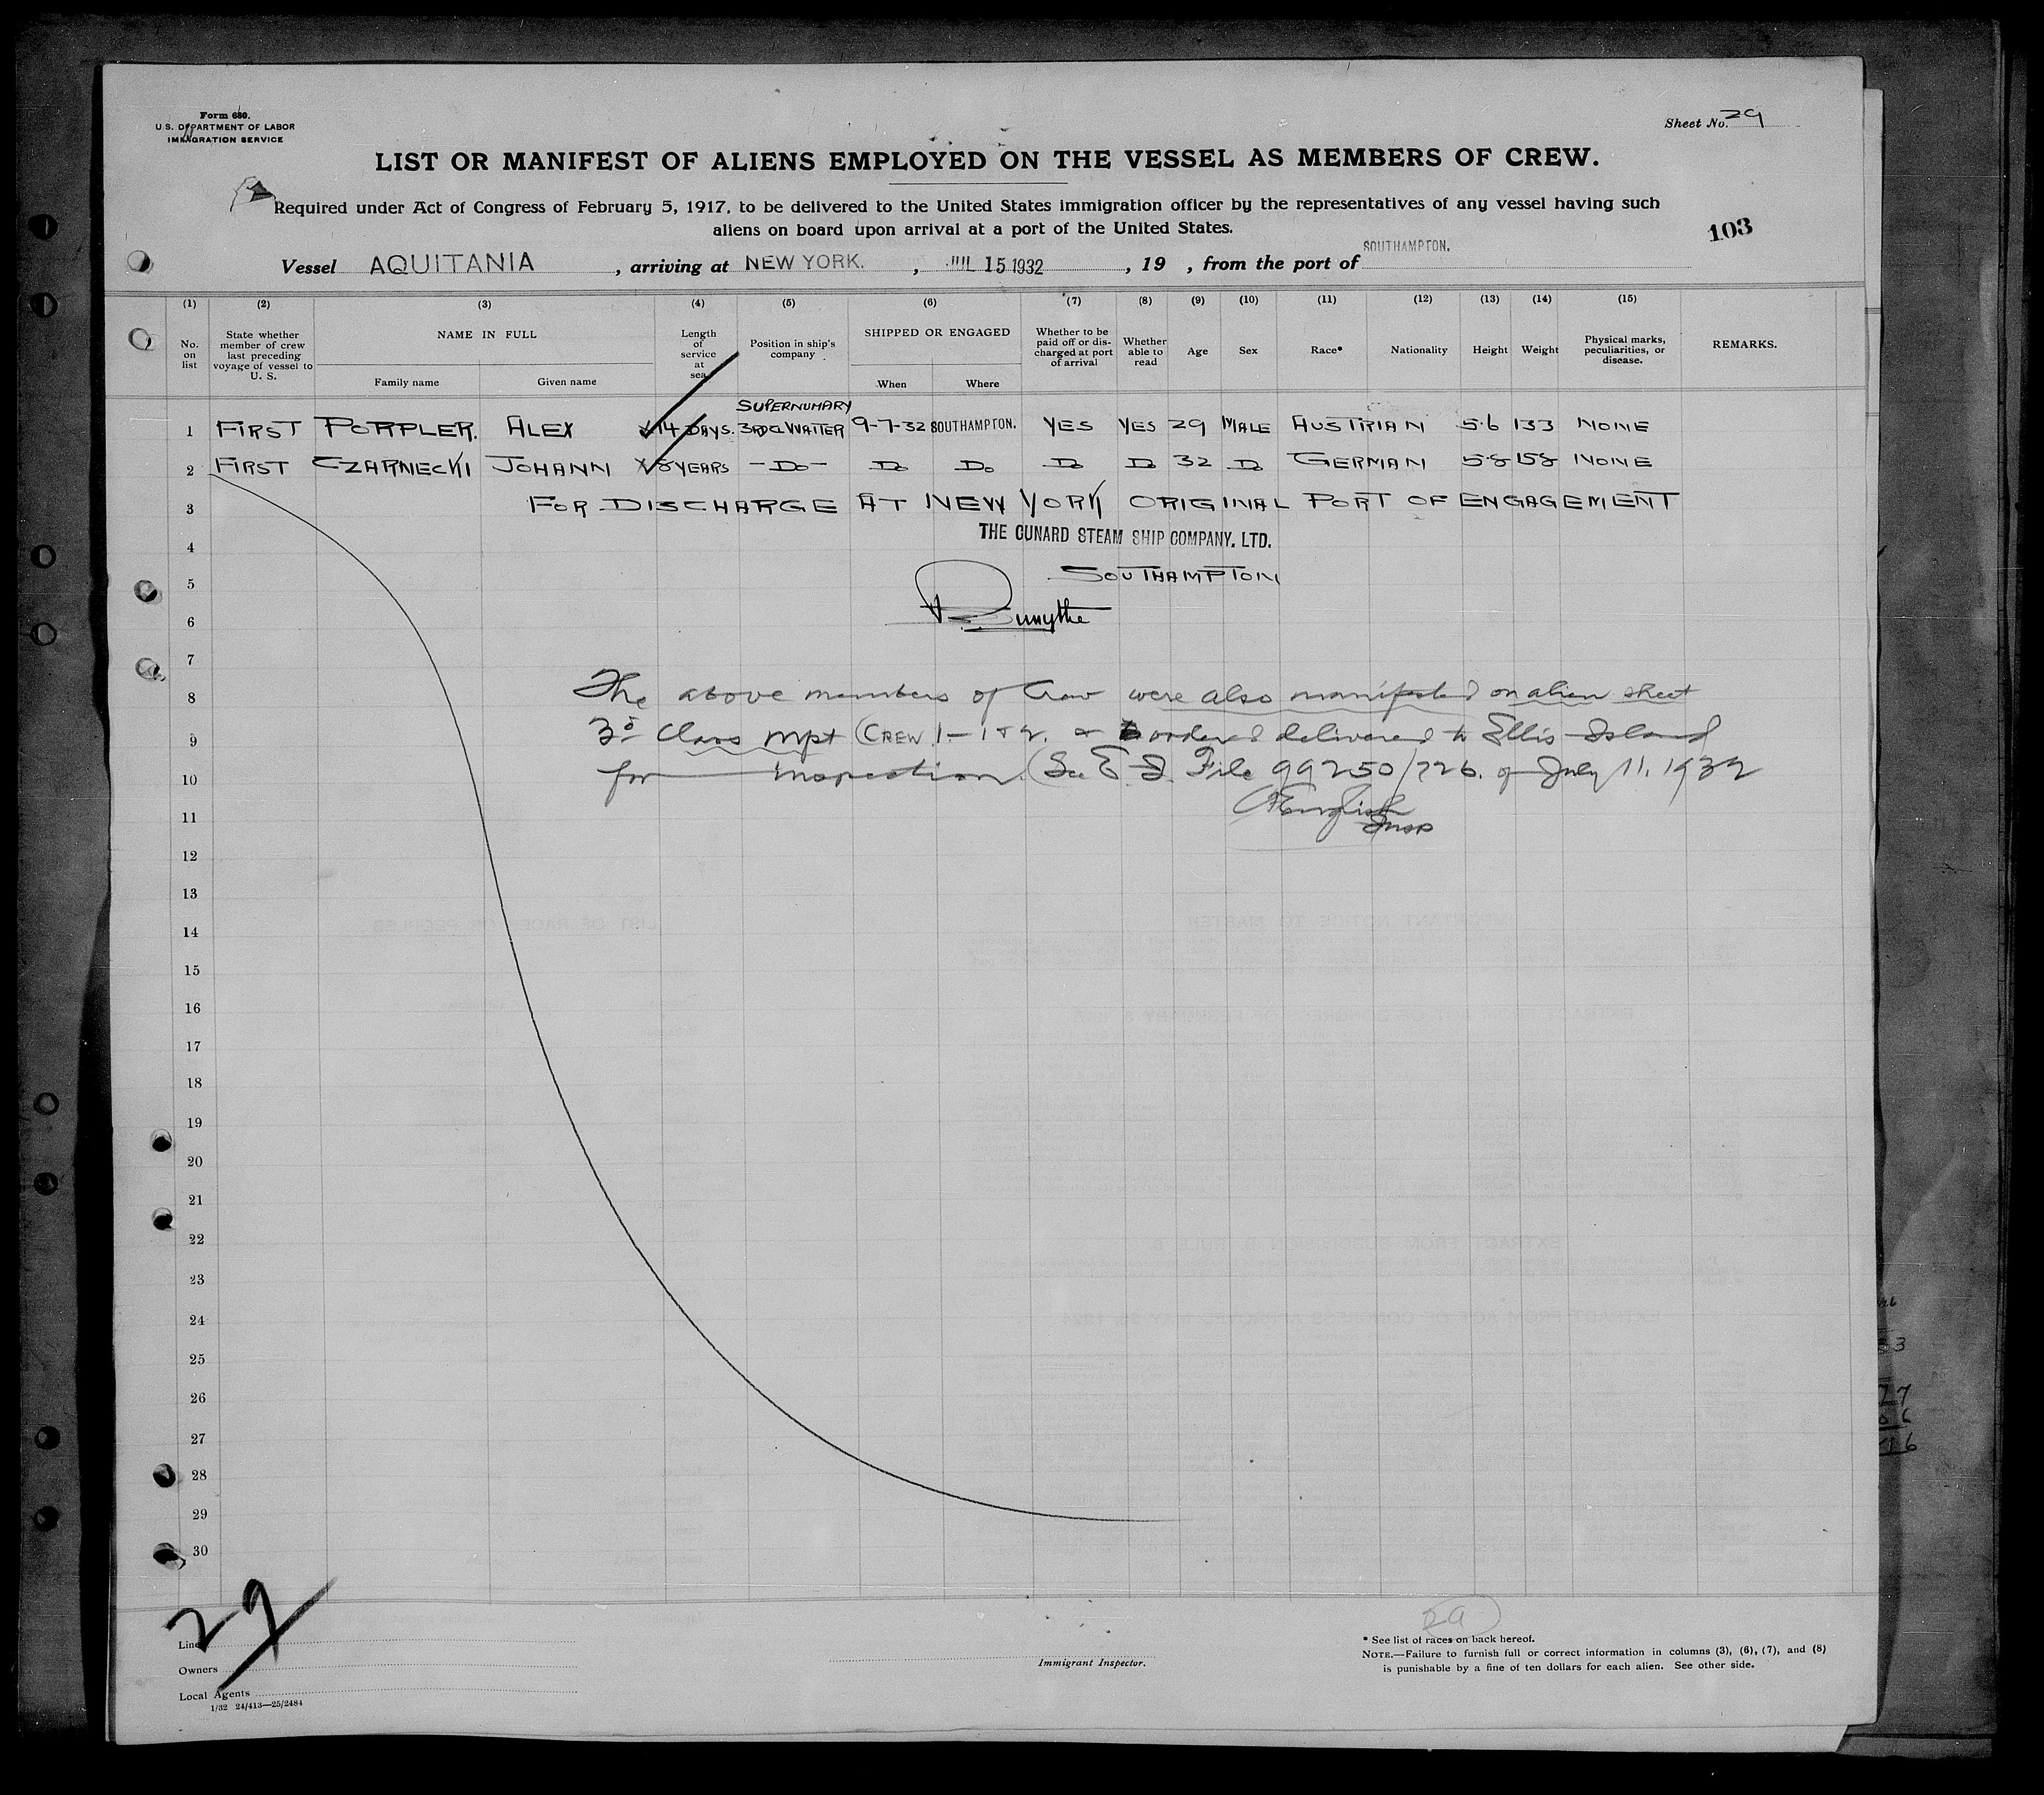 Form 680.
U.S. DEPARTMENT OF LABOR
IMMIGRATION SERVICE
Sheet No. 29
LIST OR MANIFEST OF ALIENS EMPLOYED ON THE VESSEL AS MEMBERS OF CREW.
Required under Act of Congress of February 5, 1917, to be delivered to the United States immigration officer by the representatives of any vessel having such
aliens on board upon arrival at a port of the United States.
103
Vessel AQUITANIA, arriving at NEW YORK., JUL 15 1932, 19 , from the port of SOUTHAMPTON.
(1) (2) (3) (4) (5) (6) (7) (8) (9) (10) (11) (12) (13) (14) (15)
No. on list
State whether member of crew last preceding voyage of vessel to U. S.
NAME IN FULL
Family name
Given name
Length of service at sea
Position in ship's company
SHIPPED OR ENGAGED
When
Where
Whether to be paid off or discharged at port of arrival
Whether able to read
Age
Sex
Race*
Nationality
Height
Weight
Physical marks, peculiarities, or disease.
REMARKS.
SUPERNUMARY
1 FIRST POPPLER. ALEX 14 DAYS. 3RD CL WAITER 9-7-32 SOUTHAMPTON. YES YES 29 MALE AUSTRIAN 5·6 133 NONE
2 FIRST CZARNECKI JOHANN 8 YEARS -Do- Do Do Do Do 32 Do GERMAN 5·8 158 NONE
3 FOR DISCHARGE AT NEW YORK ORIGINAL PORT OF ENGAGEMENT
4 THE CUNARD STEAM SHIP COMPANY. LTD.
5 SOUTHAMPTON
6
7
8 The above members of Crew were also manifested on alien sheet
9 3d Class mpt (CREW 1-1+2. & ordered delivered to Ellis Island
10 for inspection. (See E I. File 99250/726. of July 11, 1932
11 English
Insp
12
13
14
15
16
17
18
19
20
21
22
23
24
25
26
27
28
29
30
29
Line
Owners
Local Agents
1/32 24/413—25/2484
Immigrant Inspector.
29
* See list of races on back hereof.
NOTE.—Failure to furnish full or correct information in columns (3), (6), (7), and (8)
is punishable by a fine of ten dollars for each alien. See other side.